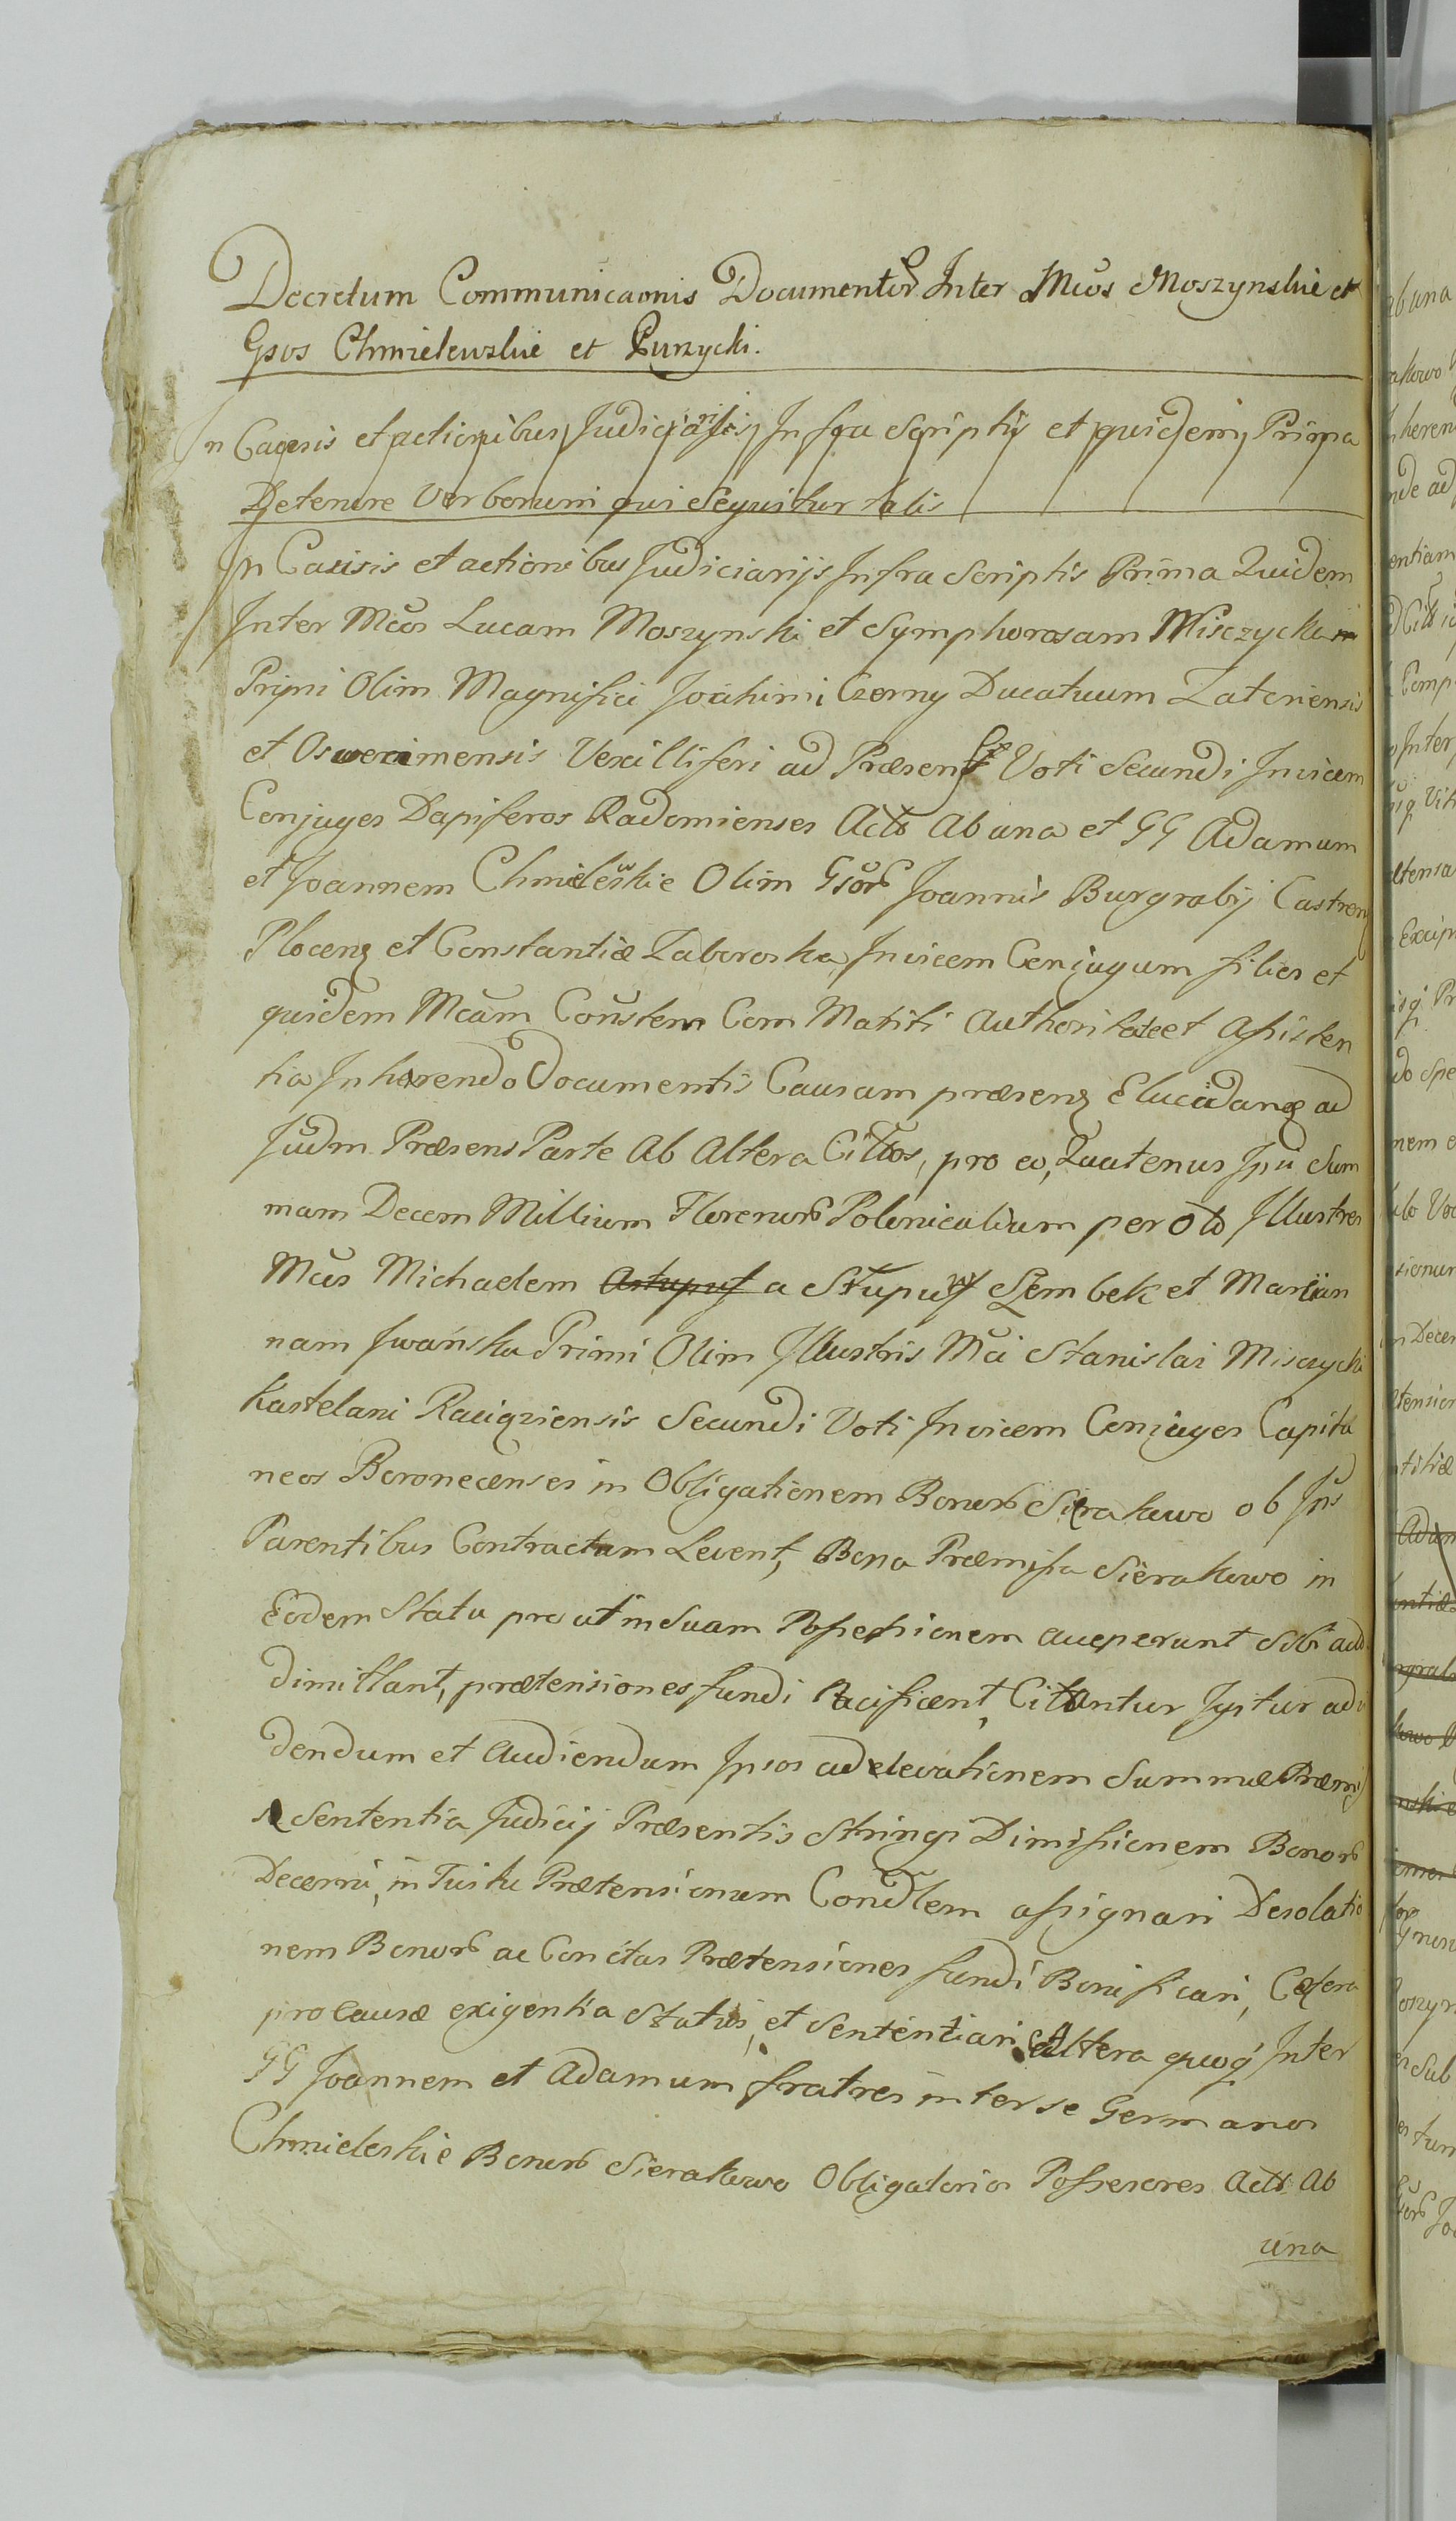 Decretum Communicaonis Documentor Inter Mcos Moszynskie et
Gsos Chmielewskie et Purzycki.
In Causis et actionibus Judiciarijs Infra Scriptis et quidem Prima
De tenore Verborum qui Sequitur talis
In Causis et actionibus Judiciarijs Infra Scriptis Prima Quidem
Inter Mcos Lucam Moszynski et Symphorosam Misczycka
Primi Olim Magnifici Joachimi Czerny Ducatuum Zatoriensis
et Oswecimensis Vexilliferi ad Præsens Voti Secundi Invicem
Conjuges Dapiferos Radomienses Acts Ab una et GG Adamum
et Joannem Chmielewskie Olim Gsor Joannis Burgrabij Castren
Plocen et Constantiæ Zaboroska Invicem Conjugum filios et
quidem Mcam Consten Com Matiti Authoritate et Assisten
tia Inhærendo Documentis Causam præsen Elucidan ad
Judm Præsens Parte Ab Altera Cittos, pro eo, Quatenus Ipsi Sum
mam Decem Millium Florenor Polonicalium per Olo Illustres
Mcos Michaelem a Słupuw Szembek et Marian
nam Iwańska Primi Olim Illustris Mci Stanislai Misczycki
Kastelani Raciąziensis Secundi Voti Invicem Conjuges Capita
neos Boronecenses in Obligationem Bonor Sierakowo ob Ips
Parentibus Contractam Levent, Bona Præmissa Sierakowo in
Eodem Statu pro ut in Suam Possessionem acceperunt Sibi add
dimittant, prætensiones fundi Pacificent, Citantur Igitur ad vi
dendum et Audiendum Ipsos ad elevationem Summæ Præmis
sæ Sententia Judicij Præsentis Stringi Dimissionem Bonor
Decerni, in Tuitu Prætensionum Condlem assignari Desolatio
nem Bonor ac Conctas Prætensiones fundi Bonificari, Cætera
pro causæ exigentia Statui, et Sententiari Altera quoq Inter
GG Joannem et Adamum fratres inter se Germanos
Chmieleskie Bonor Sierakowo Obligatorios Possessores Acts Ab
una